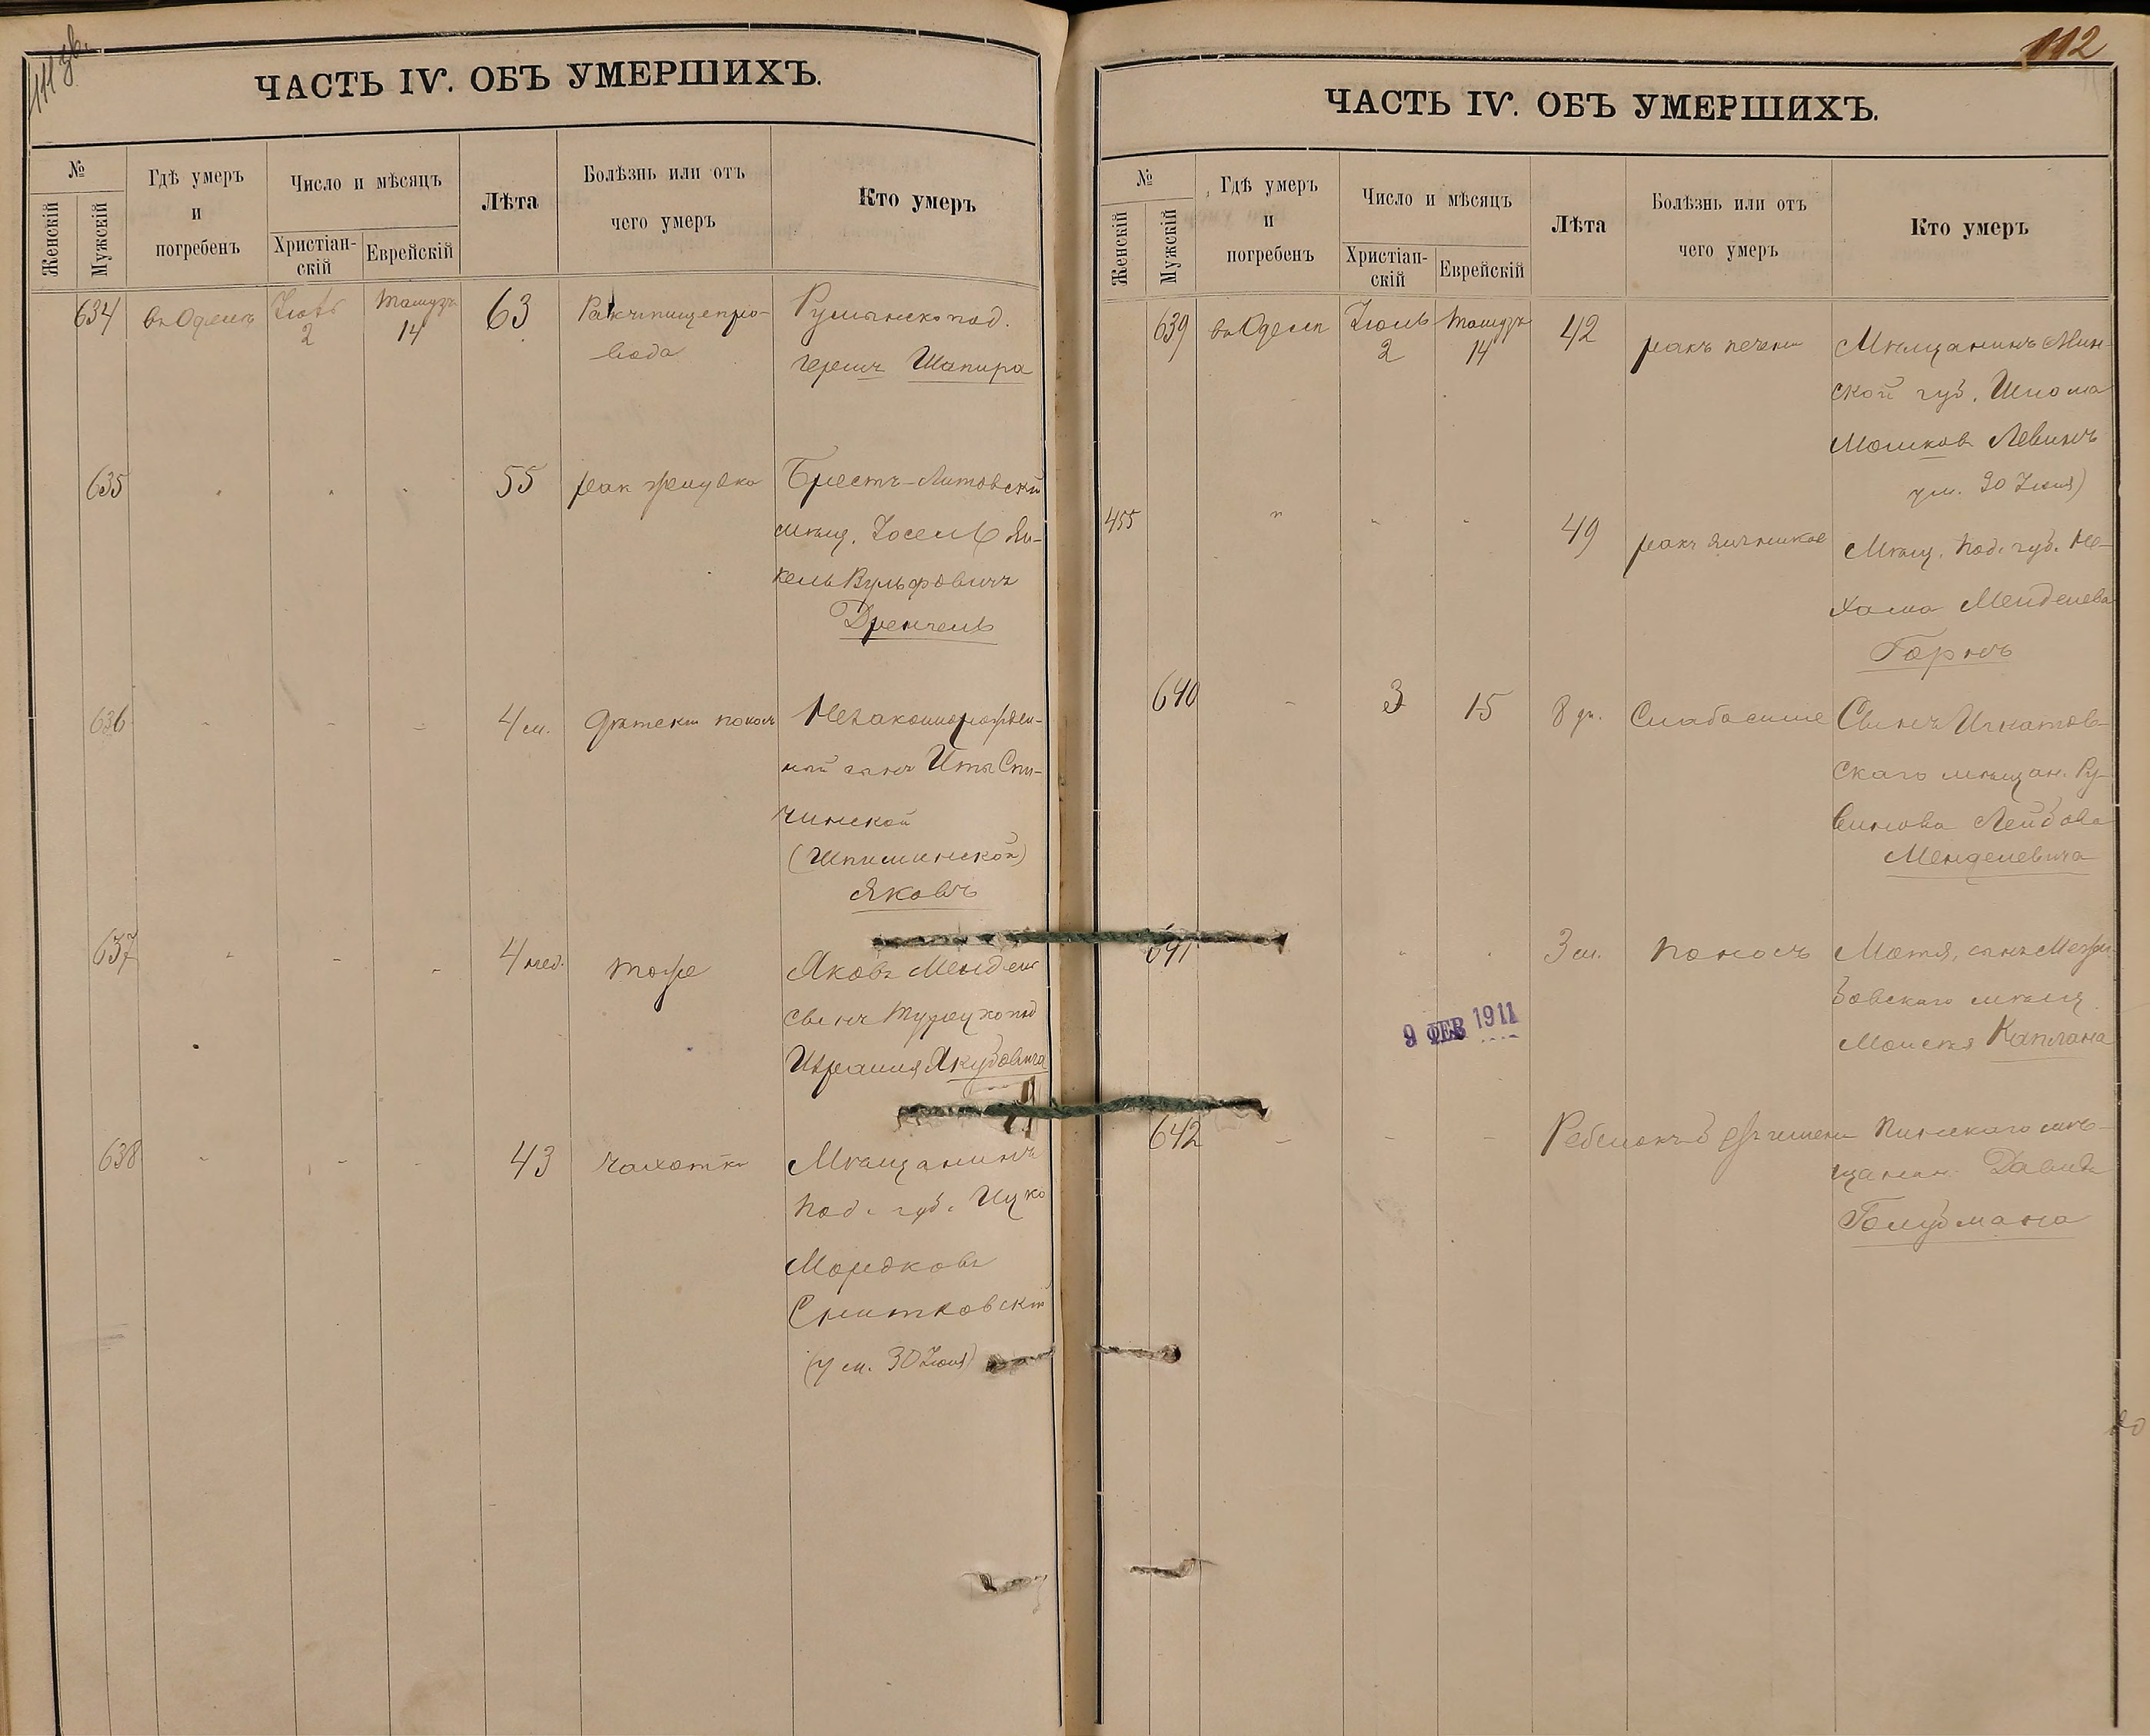 ЧАСТЬ IV. ОБЪ УМЕРШИХЪ.
№
Женскій
Мужскій
Гдѣ умеръ
и
погребенъ
Число и мѣсяцъ
Христіан-
скій
Еврейскій
Лѣта
Болѣзнь или отъ
чего умеръ
Кто умеръ
634 въ Одессѣ 2 Тамузъ 14 63 Ракъ пищепро-
вода
Румынско под.
Гершъ Шапира
635 55 рак желудка Брестъ-Литовскій
мѣщ. Іосель Ян-
кель Вульфовичъ
Дренчель
636 4 м. Дѣтскій поносъ Незаконнорожден-
ный сынъ Иты Спи-
чинской
(Шпичинской)
Яковъ
637 4 нед. тоже Яковъ Мендель
сынъ Турецко под
Израиля Якубовича
638 43 чахотка Мѣщанинъ
Под. губ. Ицко
Мордковъ
Снитковскій
(ум. 30 Іюня)
112
ЧАСТЬ IV. ОБЪ УМЕРШИХЪ.
№
Женскій
Мужскій
Гдѣ умеръ
и
погребенъ
Число и мѣсяцъ
Христіан-
скій
Еврейскій
Лѣта
Болѣзнь или отъ
чего умеръ
Кто умеръ
639 въ Одессѣ Іюль 2 Тамузъ 14 42 ракъ печени Мѣщанинъ Мин-
ской губ. Шлома
Мошковъ Левинъ
ум. 30 Іюня)
455 " 49 ракъ яичниковъ Мѣщ. Под. губ. Не-
хама Менделева
Горнъ
640 3 15 8 дн. Слабосиліе Сынъ Игнатов-
скаго мѣщан. Ру-
винова Лейбова
Менделевича
641 3 м. Поносъ Мотя, сынъ Межи-
бовскаго мѣщ
Моисея Каплана
9 ФЕВ 1911
642 Ребенокъ безъ имени Пинскаго мѣ-
щанин. Давида
Голубмана